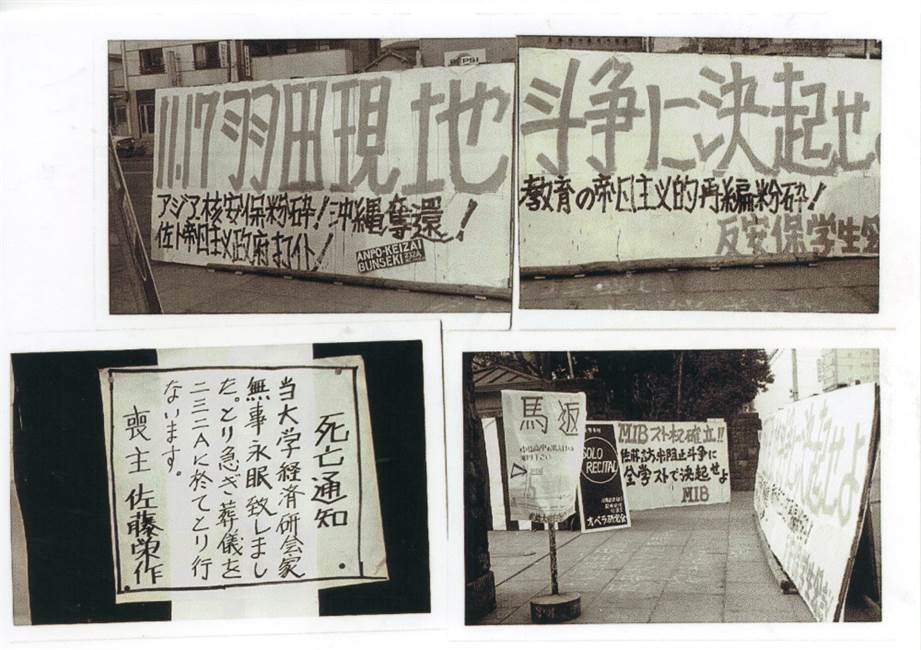 PSI
11.17羽田現地
斗争に決起せよ
アジア核安保粉砕!沖縄奪還!
佐ト帝国主義政府打倒!
教育の帝国主義的再編粉砕!
反安保学生会
ANPO-KEIZAI
BUNSEKI 232A
死亡通知
当大学経済研会家
無事永眠致しまし
た。とり急ぎ葬儀を
二三二Aに於てとり行
ないます。
喪主 佐藤栄作
馬返
SOLO
RECITAL
オペラ研究会
MIBスト权確立!!
佐藤訪米阻止斗争に
全学ストで決起せよ
MIB
決起せよ